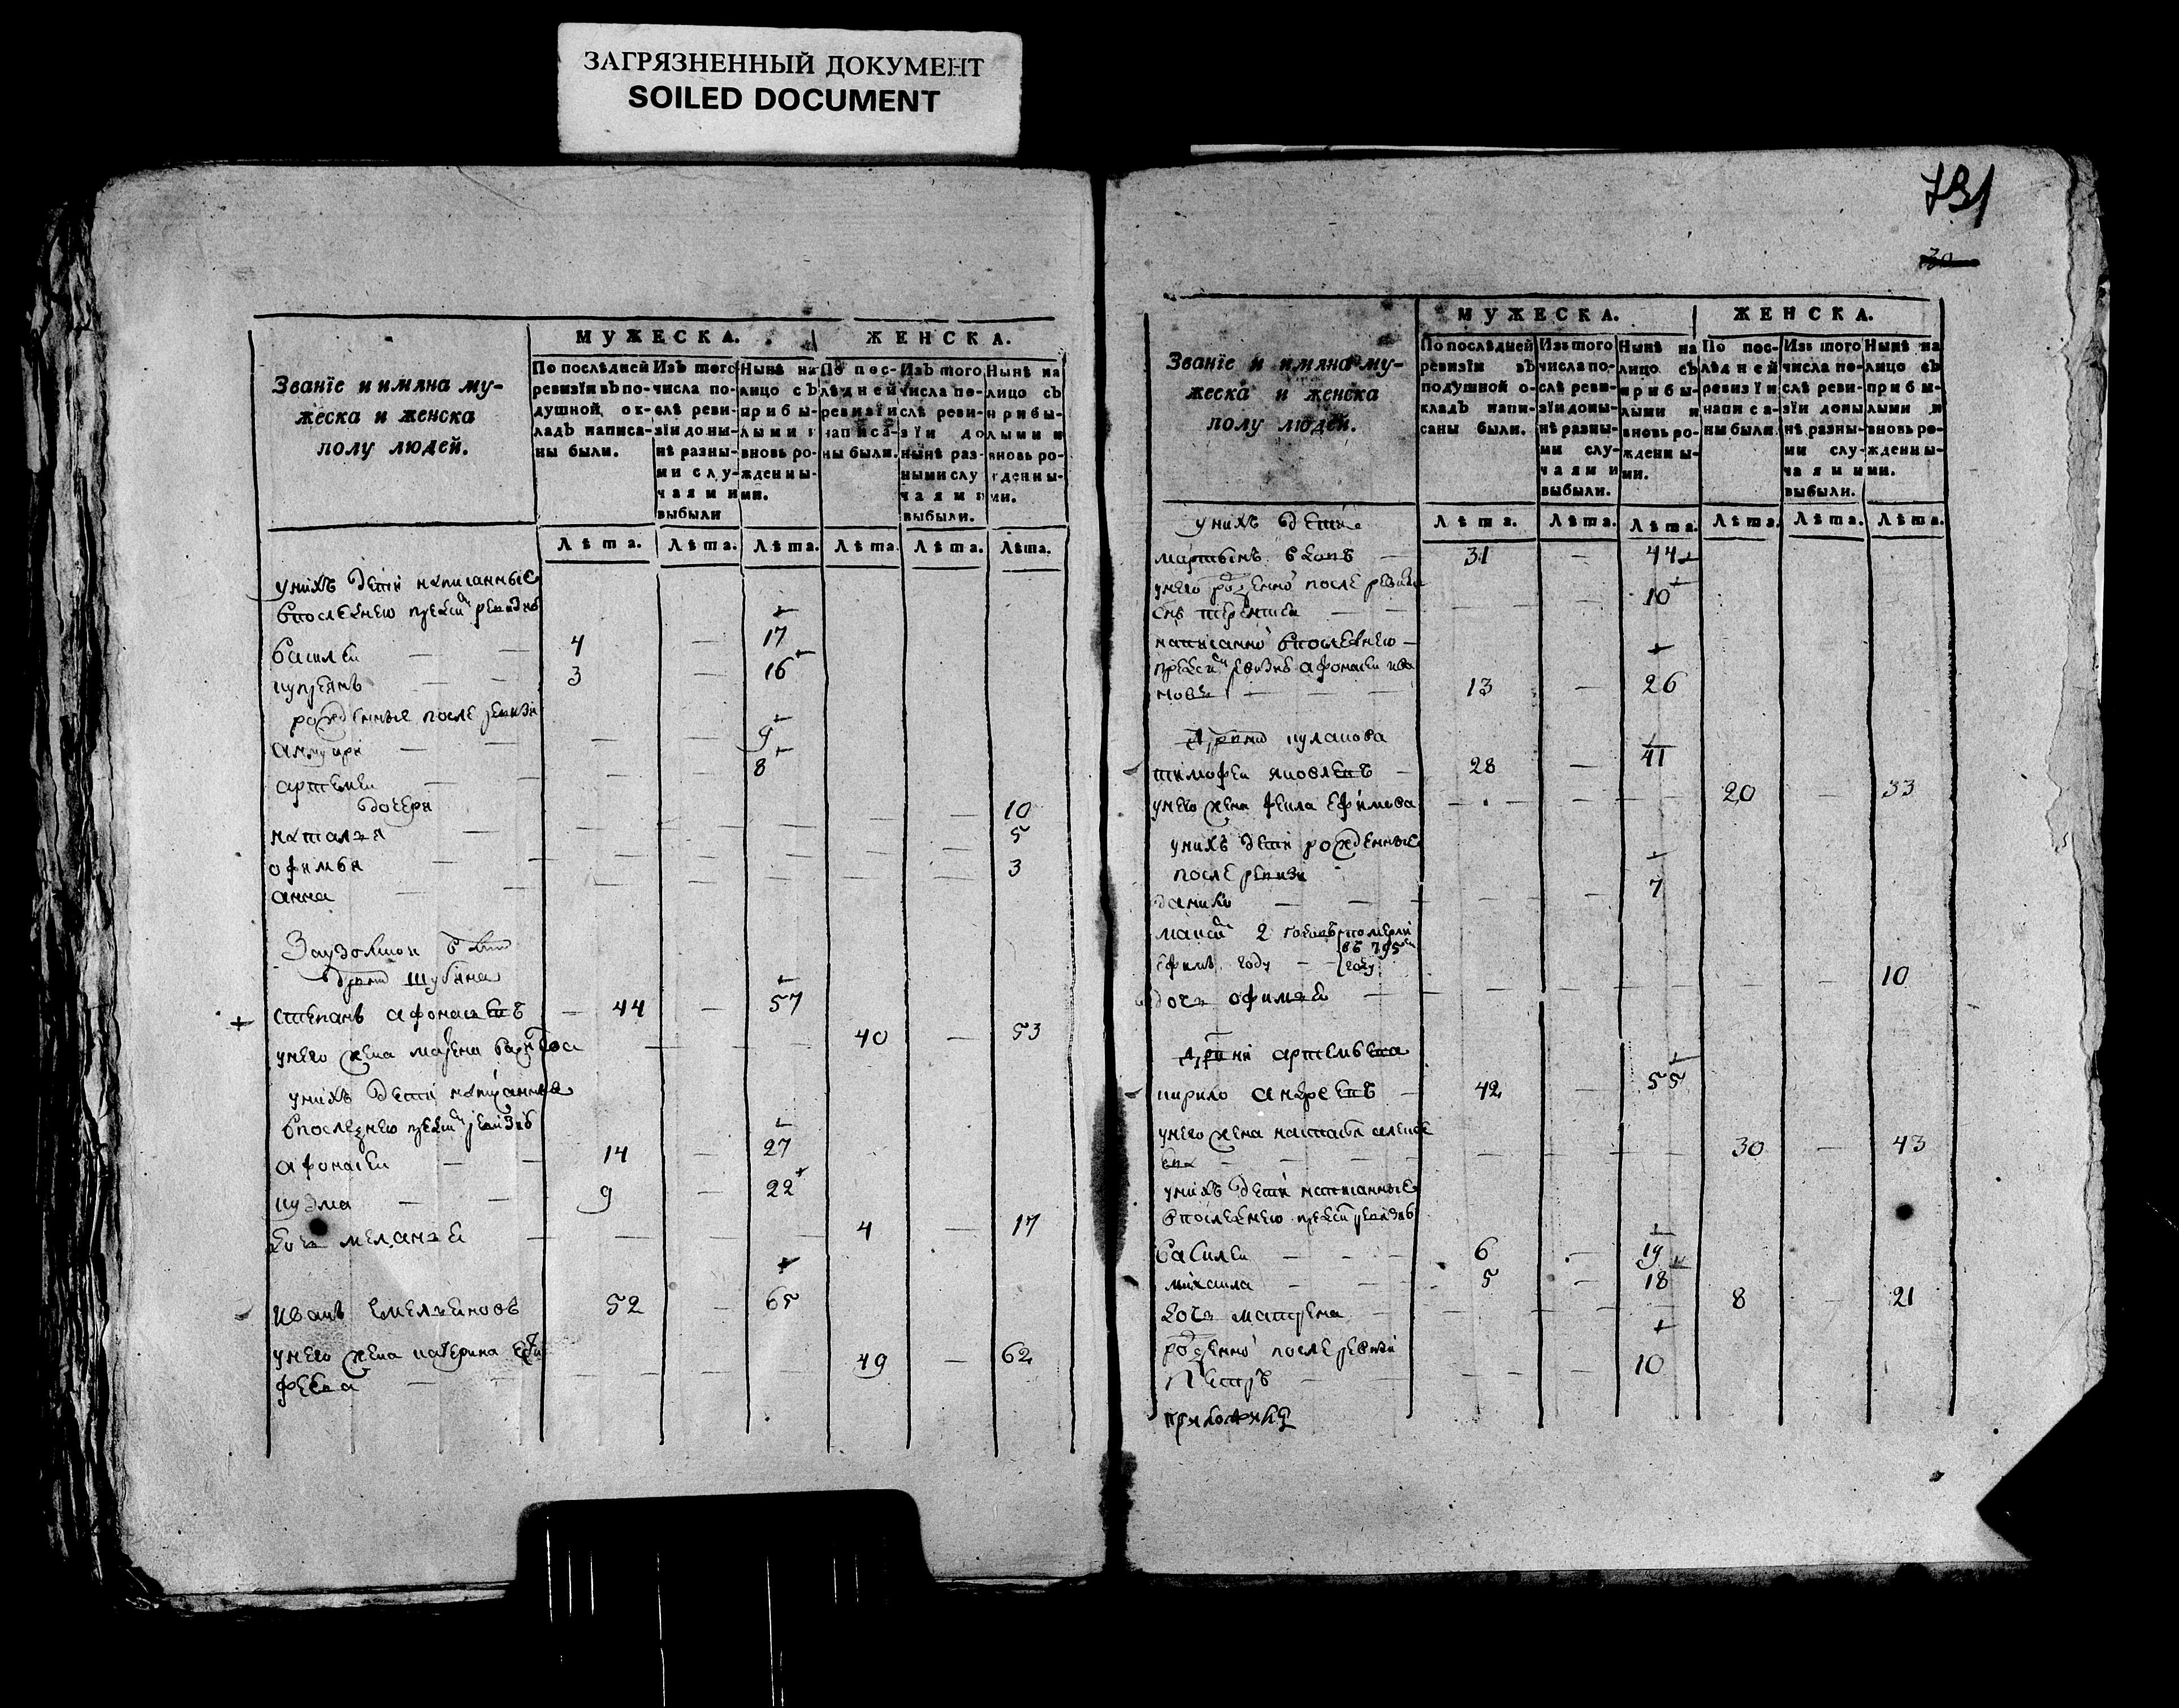 ЗАГРЯЗНЕННЫЙ ДОКУМЕНТ
SOILED DOCUMENT
Званїе и имяна му-
жеска и женска
полу людей.
МУЖЕСКА.
ЖЕНСКА.
По послѣдней ревизїи въ по-душной ок-ладъ написа-ны были.
Изъ того числа по-слѣ реви-зїи доны-нѣ разны-ми слу-чаями выбыли
Нынѣ на лицо съ прибы-лыми и вновь ро-жденны-ми.
По пос-лѣдней ревизїи написа-ны были.
Изъ того числа по-слѣ реви-зїи до нынѣ раз-ными слу чаями выбыли.
Нынѣ на лицо съ прибы-лыми и вновь ро-жденны-ми.
Лѣта. Лѣта. Лѣта. Лѣта. Лѣта. Лѣта.
унихъ дети написанные
впоследнею пред сей ревизиѣ
василеи — — 4 — 17
купреянъ — — 3 — 16
рожденные после ревизи
— — 9
артемеи — — — 8
дочери
наталья — — — — — — 10
офимья — — — — — — 5
анна — — — — — — 3
дрвни шубина
степанъ афонасьевъ — 44 — 57
унего жена марена — — — 40 — 53
унихъ дети написанные
впоследнею пред сей ревизиѣ
афонасеи — — 14 — 27
кузма — — 9 — 22
дочь меланья — — — — 4 — 17
иванъ емельяновъ 52 — 65
унего жена катерина ефи
— — — — 49 — 62
731
30
Званїе и имяна му-
жеска и женска
полу людей.
МУЖЕСКА.
ЖЕНСКА.
По послѣдней ревизїи въ подушной о-кладъ напи-саны были.
Изъ того числа по-слѣ реви-зїи доны-нѣ разны-ми слу-чаями выбыли.
Нынѣ на лицо съ прибы-лыми и вновь ро-жденны-ми.
По пос-лѣдней ревизїи написа-ны были.
Изъ того числа по-слѣ реви-зїи доны нѣ разны-ми слу-чаями выбыли.
Нынѣ на лицо съ прибы-лыми и вновь ро-жденны-ми.
Лѣта. Лѣта. Лѣта. Лѣта. Лѣта. Лѣта.
унихъ дети
мартынъ вдовъ — 31 — 44
унего рожденно после ревизи
снъ терентеи — — — — 10
написанно впоследнею —
пред сей ревизиѣ афонасеи ива
новъ — — — 13 — 26
дрвни кулакова
тимофеи яковлевъ — 28 — 41
унего жена фекла ефимова — — — — 20 — 33
унихъ дети рожденные
после ревизи
данило — — — — — 7
2 годовъ померли
ефимъ году — въ 795м году
дочь офимья — — — — — — 10
дрвни артемьева
кирило андреевъ — 42 — 55
унего жена настасья алексе
ева — — — — — 30 — 43
унихъ дети написанные
впоследнею пред сей ревизиѣ
василеи — — 6 — 19
михаила — — 5 — 18
дочь матрена — — — — 8 — 21
рожденно после ревизи
петръ — — — — 10